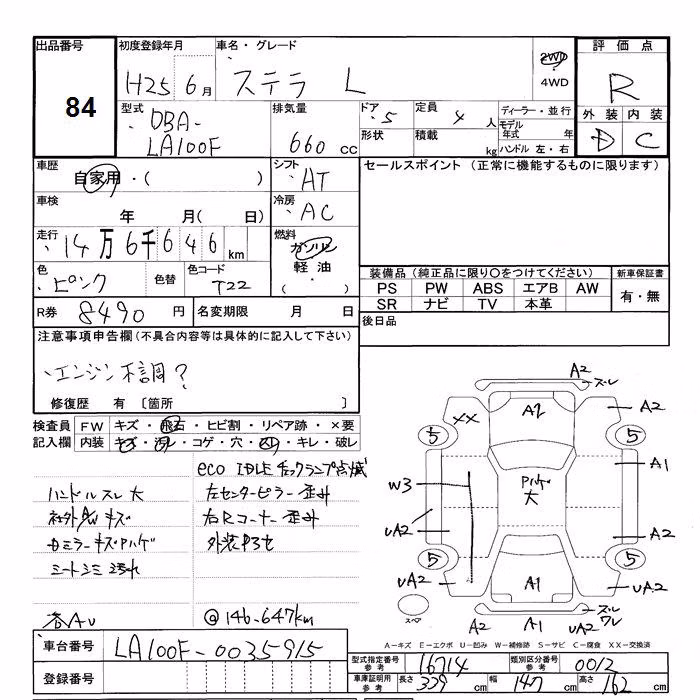 出品番号
84
初度登録年月
H25 6月
車名・グレード
ステラ L
2WD
4WD
評価点
R
外装 内装
D C
型式
DBA-
LA100F
排気量
660 cc
ドア 5
定員 4 人
ディーラー・並行
モデル年式 年
形状
積載 kg
ハンドル 左・右
車歴
自家用・( )
シフト
AT
セールスポイント (正常に機能するものに限ります)
車検
年 月(日)
冷房
AC
走行
14万6千646 km
燃料
ガソリン
軽油・
( )
色
ピンク
色替
色コード
T22
装備品(純正品に限り○をつけてください)
新車保証書
PS PW ABS エアB AW
SR ナビ TV 本革
有・無
R券 8490 円
名変期限 月 日
後日品
注意事項申告欄(不具合内容等は具体的に記入して下さい)
エンジン不調?
修復歴 有〔箇所 〕
検査員記入欄
FW キズ・飛石・ヒビ割・リペア跡・×要
内装 キズ・汚レ・コゲ・穴・スリ・キレ・破レ
eco IDLE チェックランプ点滅
ハンドルスレ大
左センターピラー歪み
社外A/Wキズ
右Rコーナー歪み
カミラーキズPハゲ
シートシミ汚れ
@146-647km
A2
ズレ
XX
A2
A2
5
5
A1
W3
Pハゲ
大
UA2
A2
5
5
UA2
A1
UA2
スペア
A2
A1
UA2
ズレ
ワレ
A-キズ E-エクボ U-凹み W-補修跡 S-サビ C-腐食 XX-交換済
車台番号
LA100F-0035915
登録番号
型式指定番号
参考
16714
類別区分番号
参考
0012
車庫証明用
参考
長さ 339 cm 幅 147 cm 高さ 162 cm